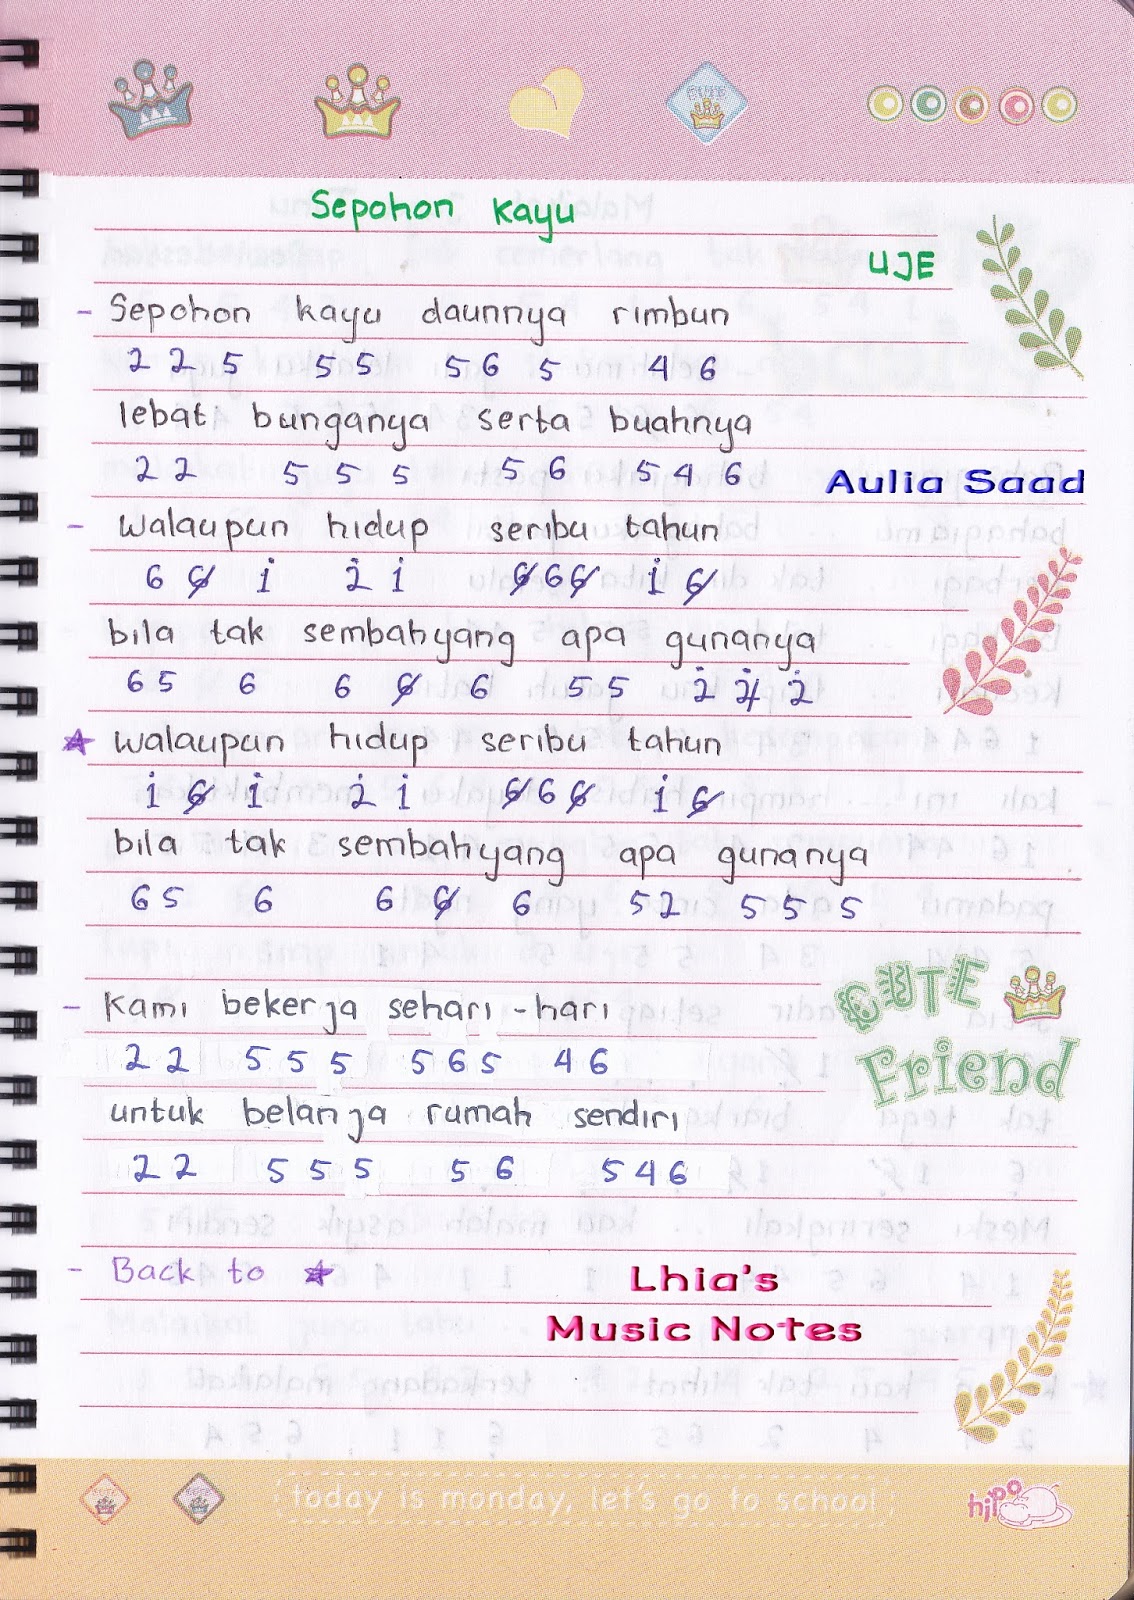 CUTE
Sepohon kayu
UJE
- Sepohon kayu daunnya rimbun
2 2 5 5 5 5 6 5 4 6
lebat bunganya serta buahnya
2 2 5 5 5 5 6 5 4 6
Aulia Saad
- walaupun hidup seribu tahun
6 6̸ i 2̇ i 6̸ 6 6̸ i 6̸
bila tak sembahyang apa gunanya
6 5 6 6 6̸ 6 5 5 2̇ 2̸̇ 2̇
☆ walaupun hidup seribu tahun
i 6̸ i 2̇ i 6̸ 6 6̸ i 6̸
bila tak sembahyang apa gunanya
6 5 6 6 6̸ 6 5 2 5 5 5
CUTE
- Kami bekerja sehari-hari
2 2 5 5 5 5 6 5 4 6
Friend
untuk belanja rumah sendiri
2 2 5 5 5 5 6 5 4 6
- Back to ☆
Lhia's
Music Notes
today is monday, let's go to school
hippo